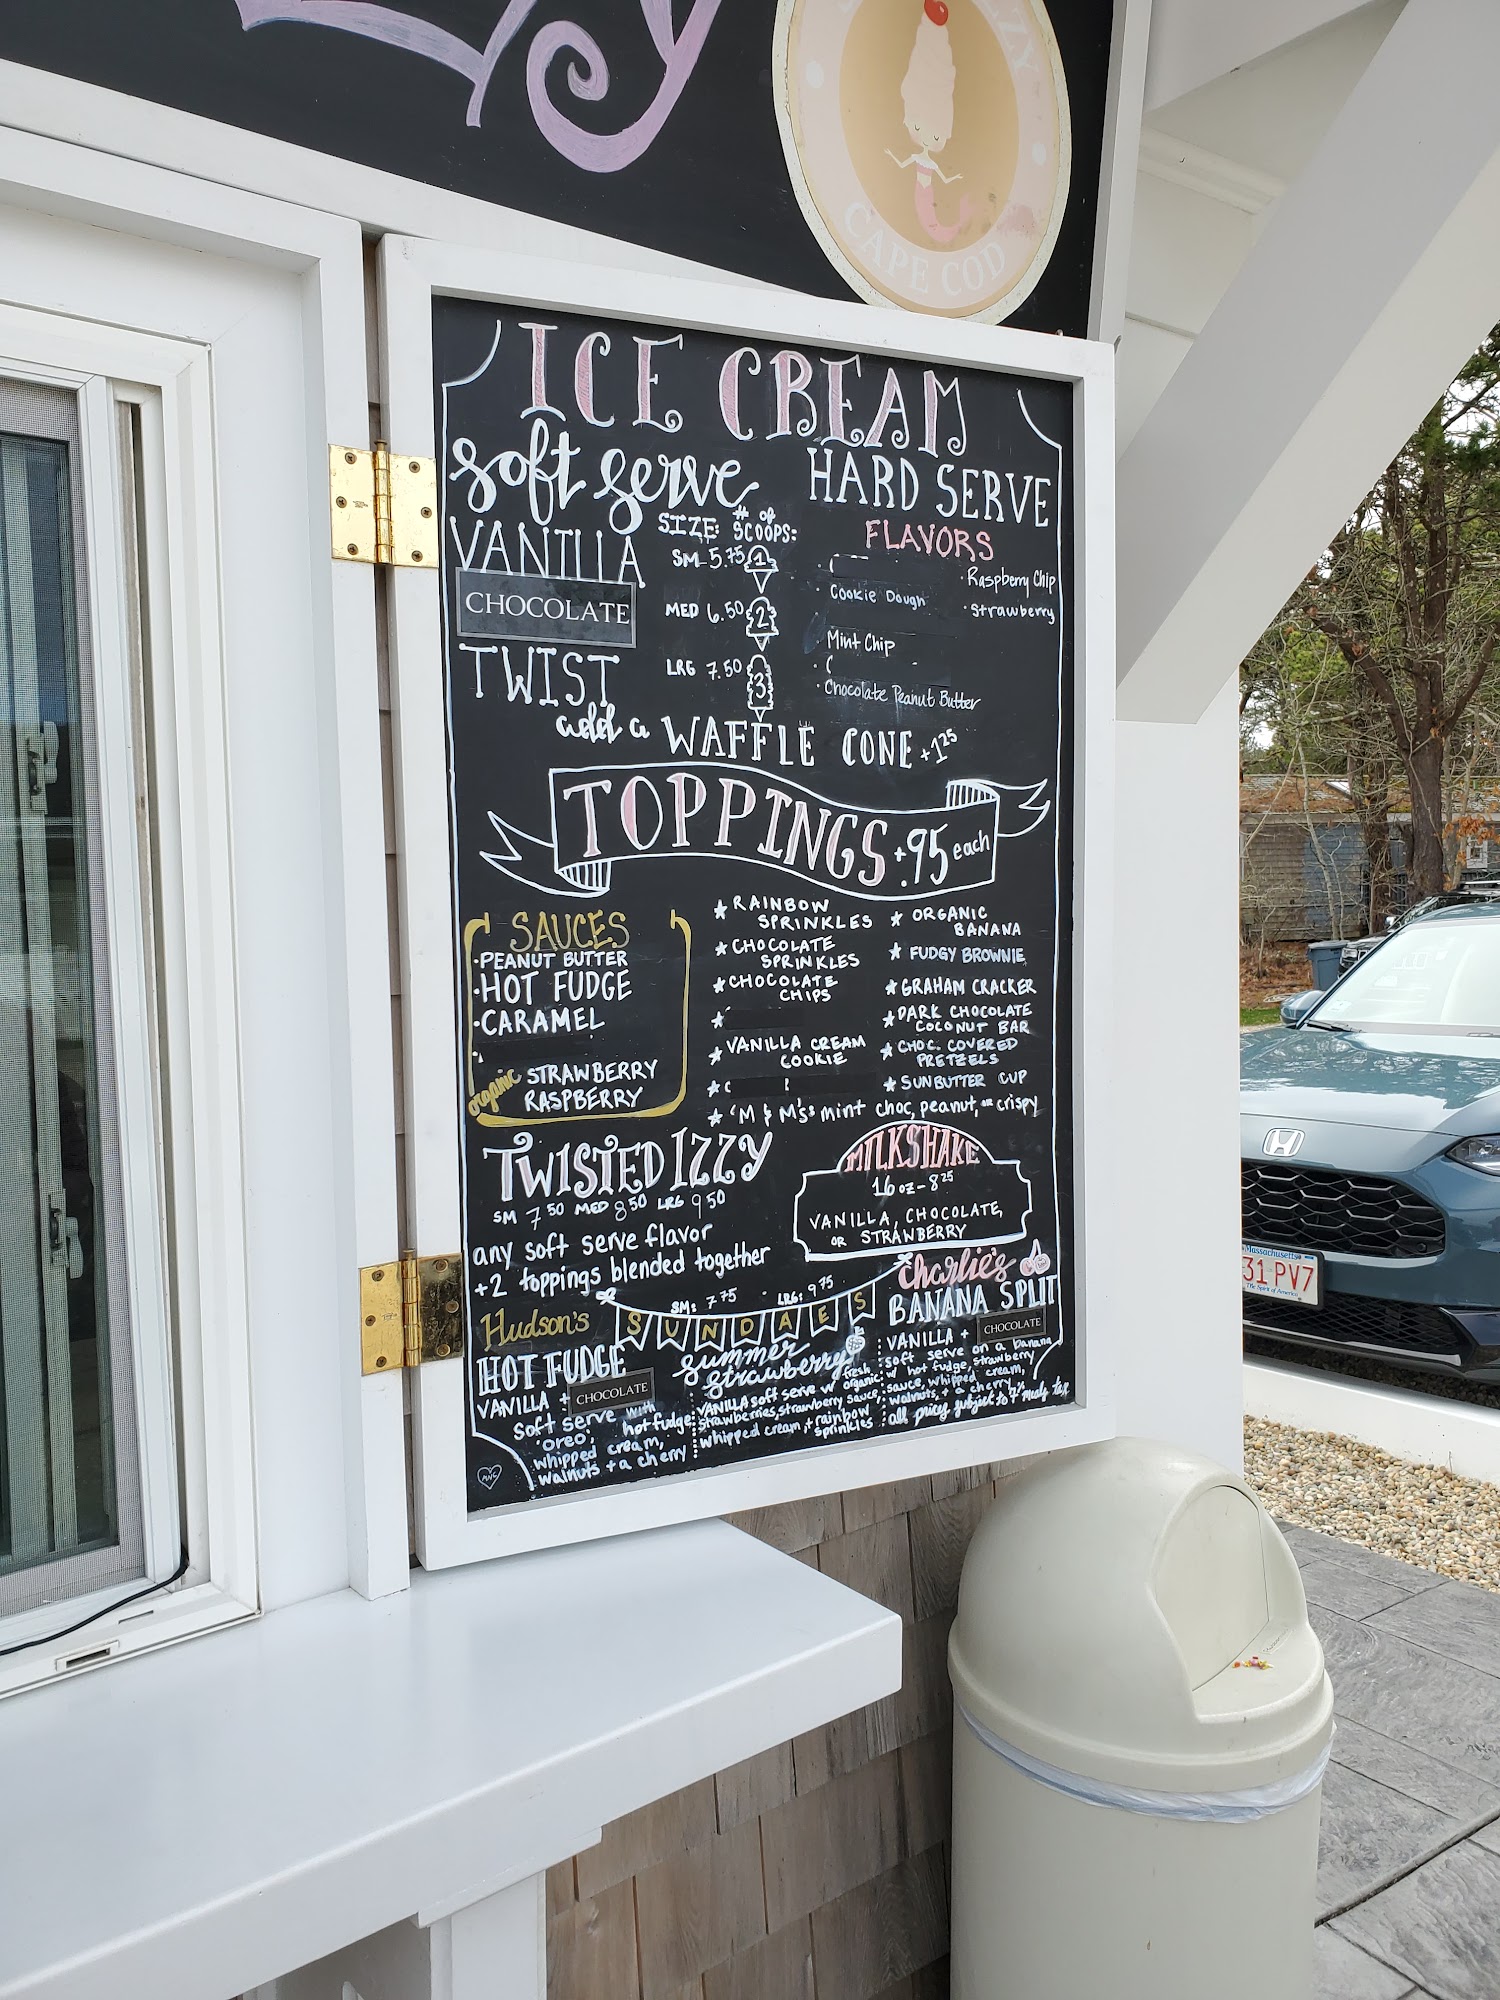 ZZY
CAPE COD
ICE CREAM
soft serve
VANILLA
CHOCOLATE
TWIST
SIZE: # of SCOOPS:
SM 5.75 1
MED 6.50 2
LRG 7.50 3
HARD SERVE
FLAVORS
· Cookie Dough
Mint Chip
· Chocolate Peanut Butter
· Raspberry Chip
· Strawberry
add a WAFFLE CONE +1.25
TOPPINGS +.95 each
SAUCES
· PEANUT BUTTER
· HOT FUDGE
· CARAMEL
organic STRAWBERRY
RASPBERRY
★ RAINBOW
SPRINKLES
★ CHOCOLATE
SPRINKLES
★ CHOCOLATE
CHIPS
★ VANILLA CREAM
COOKIE
★ ORGANIC
BANANA
★ FUDGY BROWNIE
★ GRAHAM CRACKER
★ DARK CHOCOLATE
COCONUT BAR
★ CHOC. COVERED
PRETZELS
★ SUNBUTTER CUP
★ 'M & M's: mint choc, peanut, or crispy
TWISTED IZZY
SM 7.50 MED 8.50 LRG 9.50
any soft serve flavor
+2 toppings blended together
MILKSHAKE
16 oz - 8.25
VANILLA, CHOCOLATE,
OR STRAWBERRY
Hudson's
SM: 7.75 LRG: 9.75
SUNDAES
HOT FUDGE
VANILLA + CHOCOLATE
soft serve with
oreo, hot fudge,
whipped cream,
walnuts + a cherry
summer
strawberry
VANILLA soft serve w/ fresh organic
strawberries, strawberry sauce,
whipped cream, + rainbow
sprinkles
Charlie's
BANANA SPLIT
VANILLA + CHOCOLATE
soft serve on a banana
w/ hot fudge, strawberry
sauce, whipped cream,
walnuts, + a cherry
all prices subject to 7% meals tax
MNC
Massachusetts
31 PV7
The Spirit of America